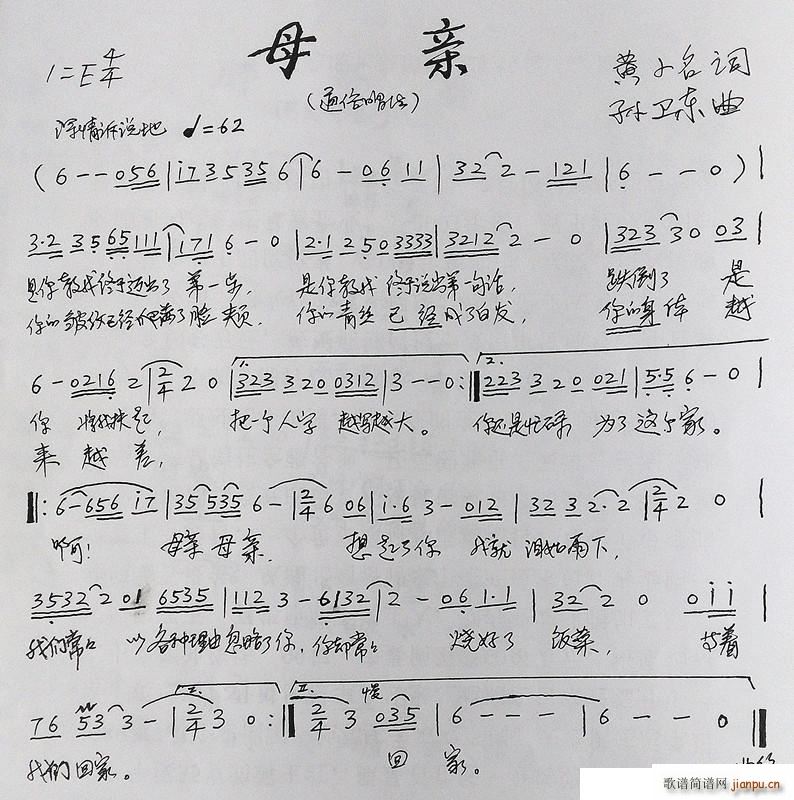 母 亲
1=E 4/4
(通俗唱法)
黄小名 词
孙卫东 曲
深情诉说地 ♩=62
(6 - - 056 | i7 35 35 6 | 6 - 06 11 | 32 2 - 121 | 6 - - 0) |
3·2 35 65 111 | 171 6 - 0 | 2·1 25 0 3333 | 3212 2 - 0 | 323 3 0 03 |
是你教我终于迈出了 第一步, 是你教我 终于说出第一句话, 跌倒了 是
你的皱纹已经爬满了脸 颊, 你的青丝 已 经 成了白发, 你的身体 越
6 - 0216 2 | 2/4 2 0 | 1. 323 3 20 0312 | 3 - - 0 :‖ 2. 223 3 20 021 | 5·5 6 - 0 |
你 将我扶起, 把一个人字 越写越大。 你还是忙碌 为了这个家。
来 越 差,
‖: 6 - 656 i7 | 35 535 6 - | 2/4 6 06 | i·6 3 - 012 | 32 3 2· 2 | 2/4 2 0 |
啊! 母亲 母亲 想起了你 我就 泪如雨下,
3532 2 01 6535 | 112 3 - 6132 | 2 - 06 1·1 | 32 2 0 0ii |
我们常常 以各种理由忽略了你, 你却常常 烧好了 饭菜, 等着
76 53 3 - | I. 2/4 3 0 :‖ II. 2/4 3 慢 035 | 6 - - - | 6 - - 0 ‖
我们回家。 回 家。
歌谱简谱网
jianpu.cn